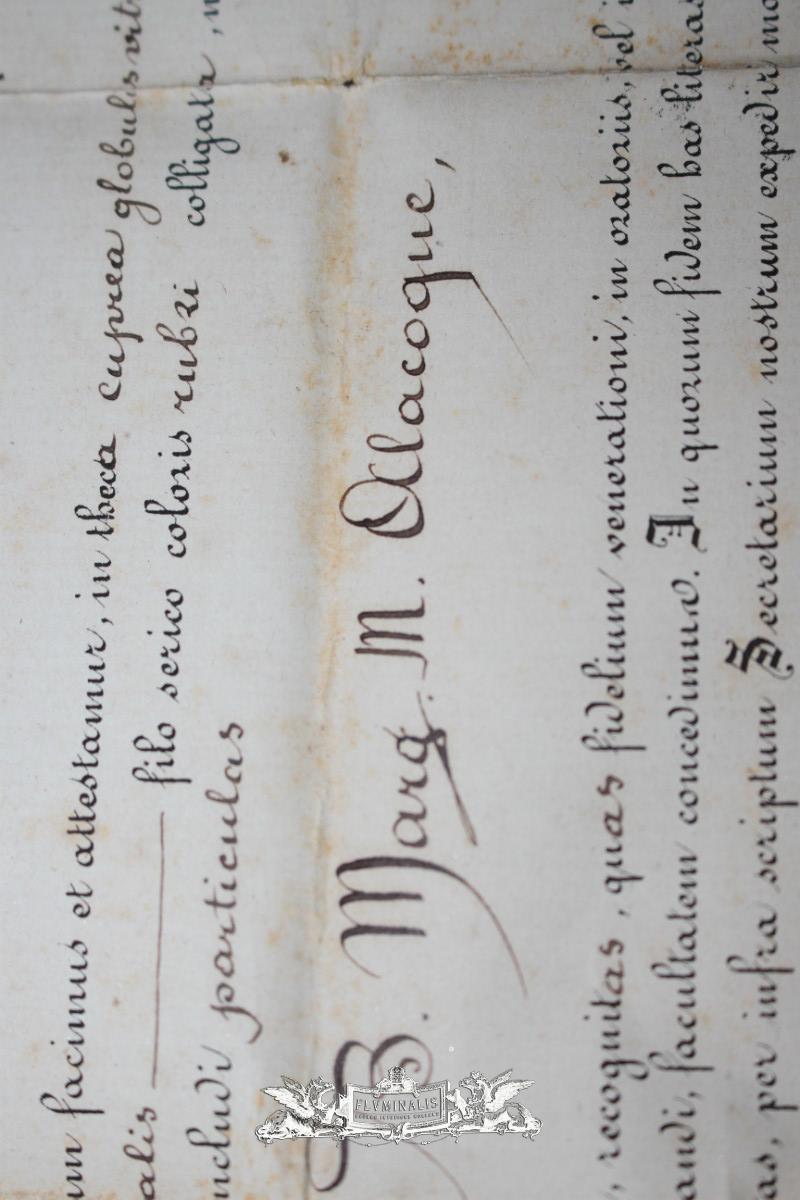 facimus et attestamur, in theca cuprea globulis
alis — filo serico coloris rubri colligata,
includi particulas
B. Marg. M. Alacoque,
, recognitas, quas fidelium venerationi, in oratoriis, vel
andi, facultatem concedimus. In quorum fidem has literas
as, per infra scriptum Secretarium nostrum expediri
FLVMINALIS